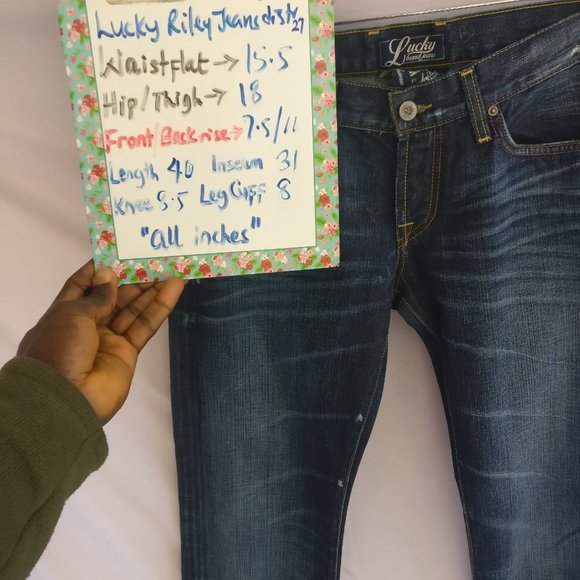 Lucky Riley Jeans
27
Waist flat → 15.5
Hip/Thigh → 18
Front/Back rise → 7.5/11
Length 40 Inseam 31
Knee 8.5 Leg Cuff 8
"all inches"
Lucky
brand jeans